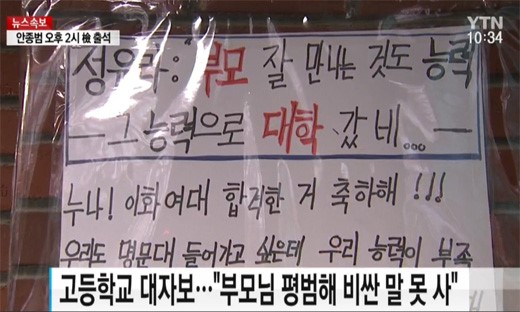 뉴스속보
안종범 오후 2시 檢 출석
YTN
10:34
정유라: "부모 잘 만나는 것도 능력
— 그 능력으로 대학 갔네... —
누나! 이화여대 합격한 거 축하해 !!!
우리도 명문대 들어가고 싶은데 우리 능력이 부족
고등학교 대자보…"부모님 평범해 비싼 말 못 사"